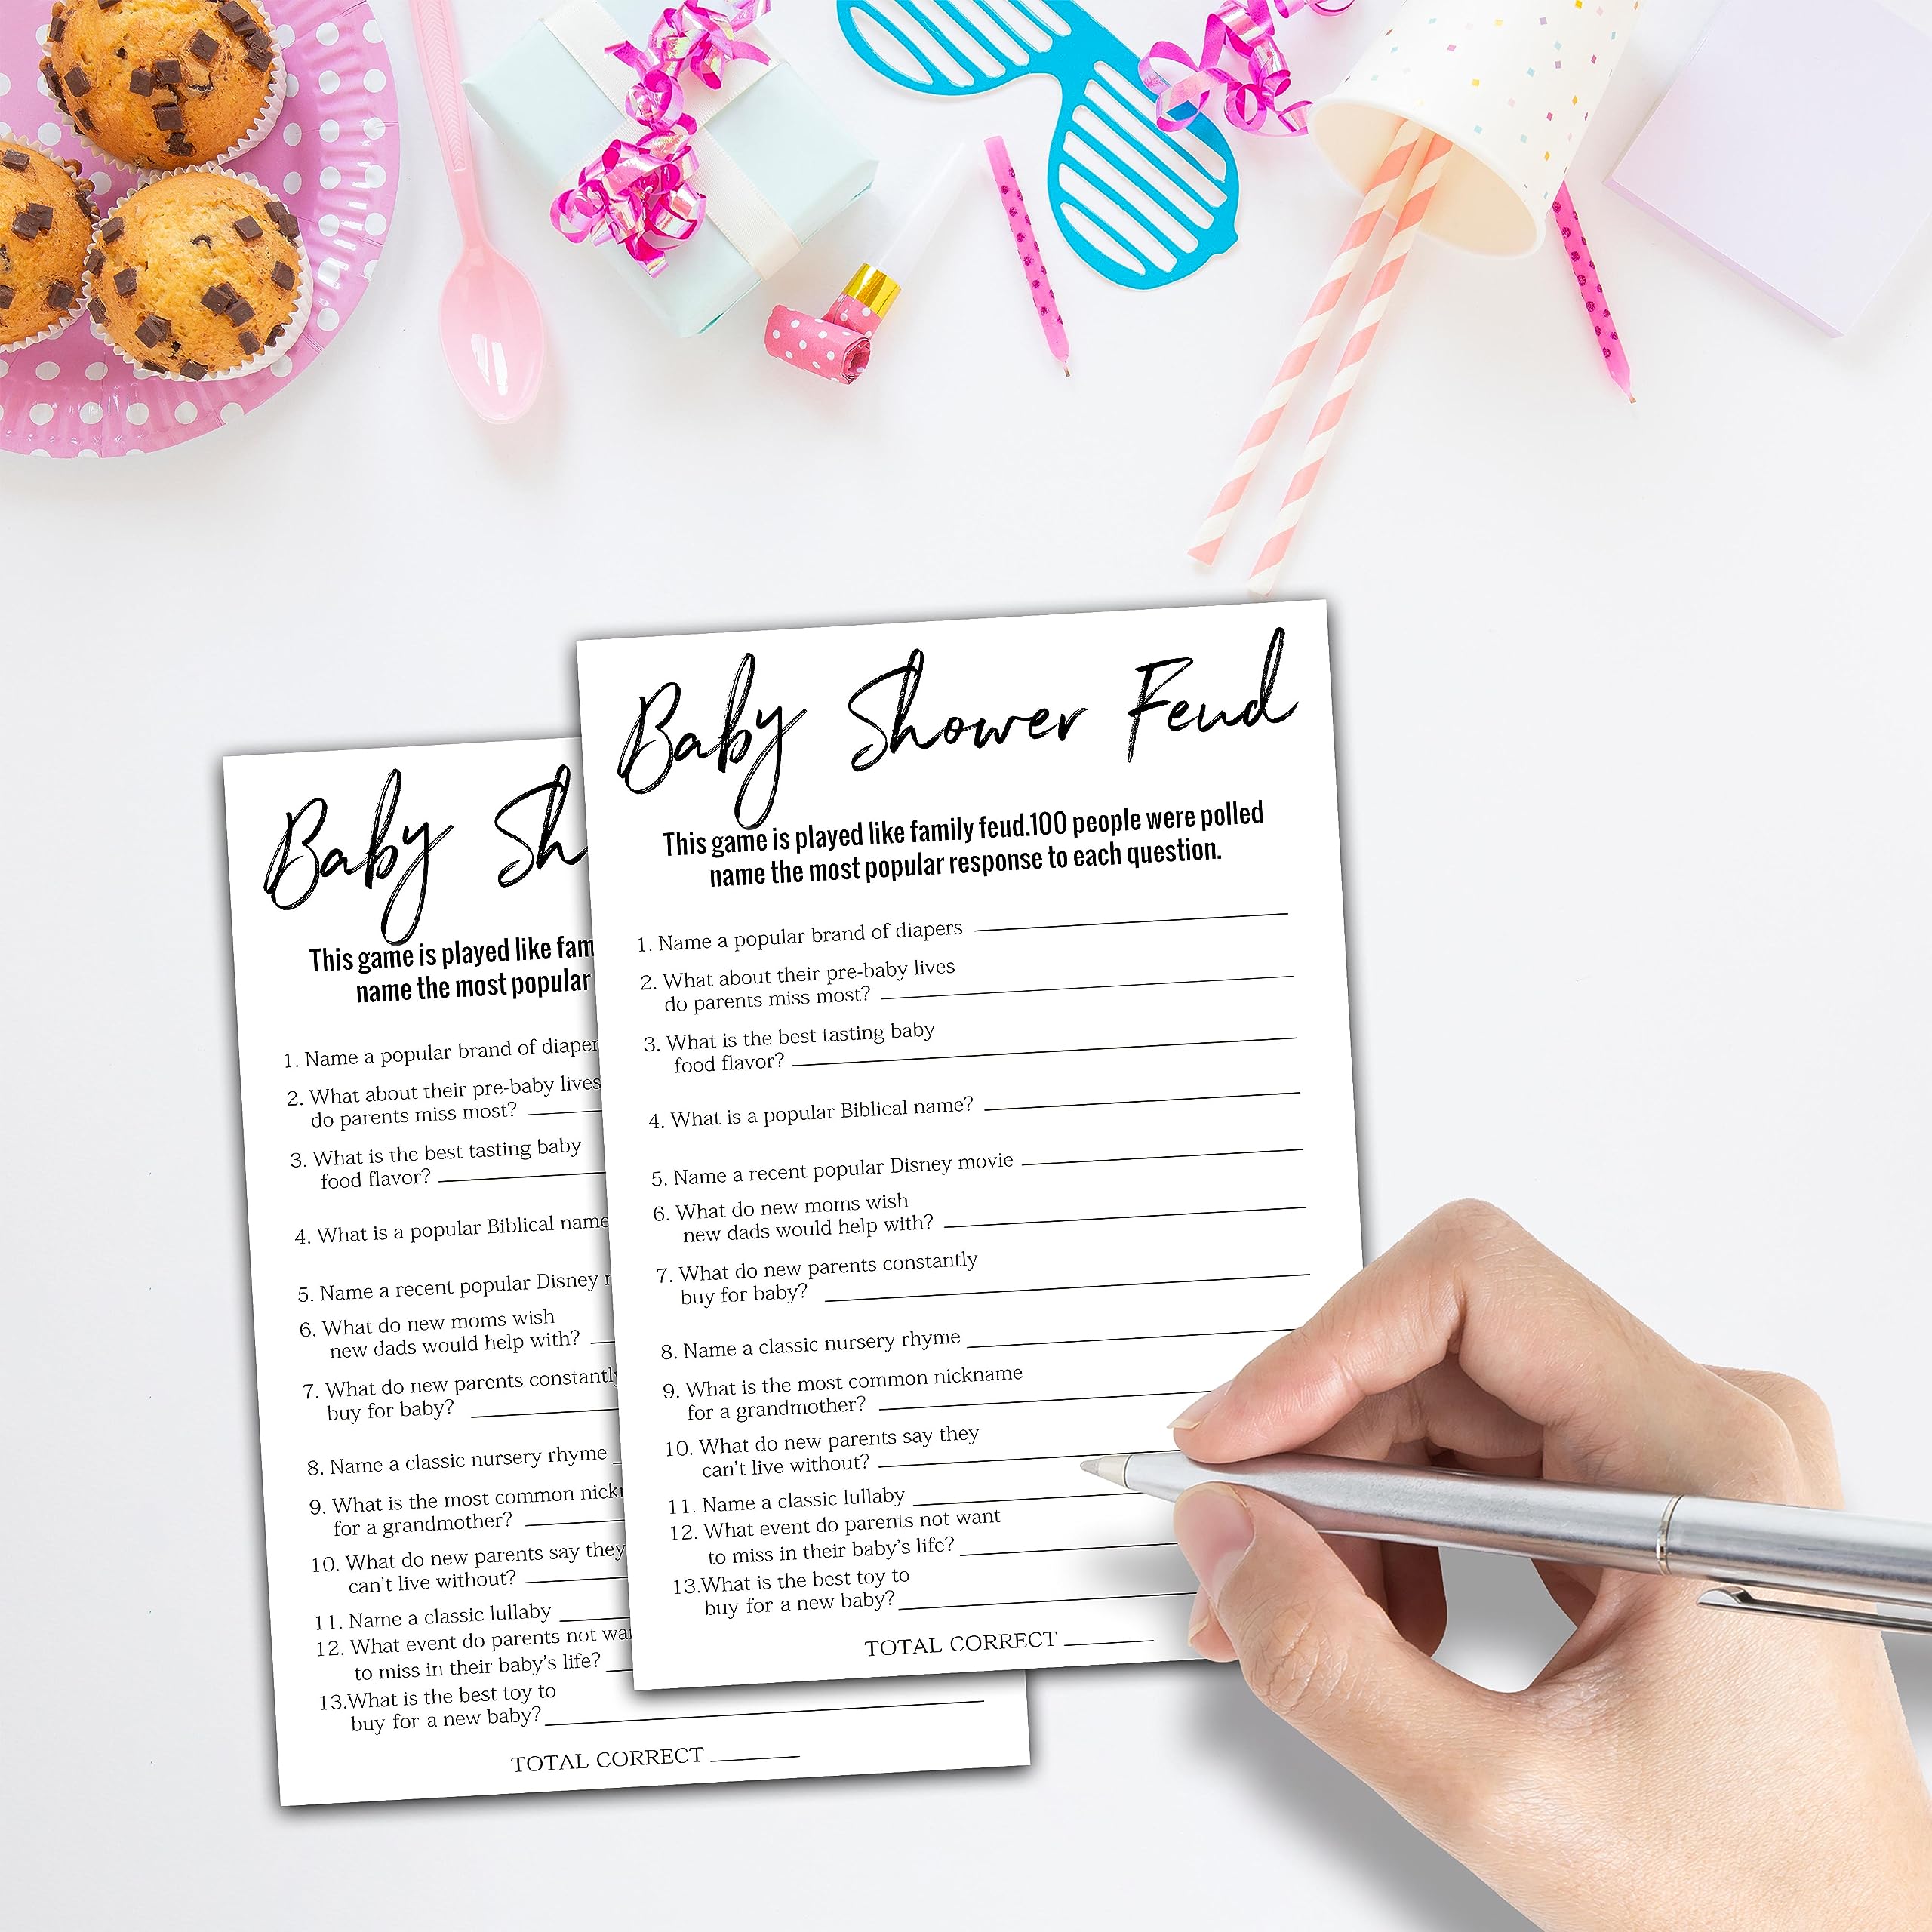 Baby Shower Feud
This game is played like family feud.100 people were polled
name the most popular response to each question.
1. Name a popular brand of diapers
2. What about their pre-baby lives
do parents miss most?
3. What is the best tasting baby
food flavor?
4. What is a popular Biblical name?
5. Name a recent popular Disney movie
6. What do new moms wish
new dads would help with?
7. What do new parents constantly
buy for baby?
8. Name a classic nursery rhyme
9. What is the most common nickname
for a grandmother?
10. What do new parents say they
can't live without?
11. Name a classic lullaby
12. What event do parents not want
to miss in their baby's life?
13.What is the best toy to
buy for a new baby?
TOTAL CORRECT
Baby Sh
This game is played like fam
name the most popular
1. Name a popular brand of diaper
2. What about their pre-baby lives
do parents miss most?
3. What is the best tasting baby
food flavor?
4. What is a popular Biblical name
5. Name a recent popular Disney
6. What do new moms wish
new dads would help with?
7. What do new parents constantly
buy for baby?
8. Name a classic nursery rhyme
9. What is the most common nick
for a grandmother?
10. What do new parents say they
can't live without?
11. Name a classic lullaby
12. What event do parents not wa
to miss in their baby's life?
13.What is the best toy to
buy for a new baby?
TOTAL CORRECT